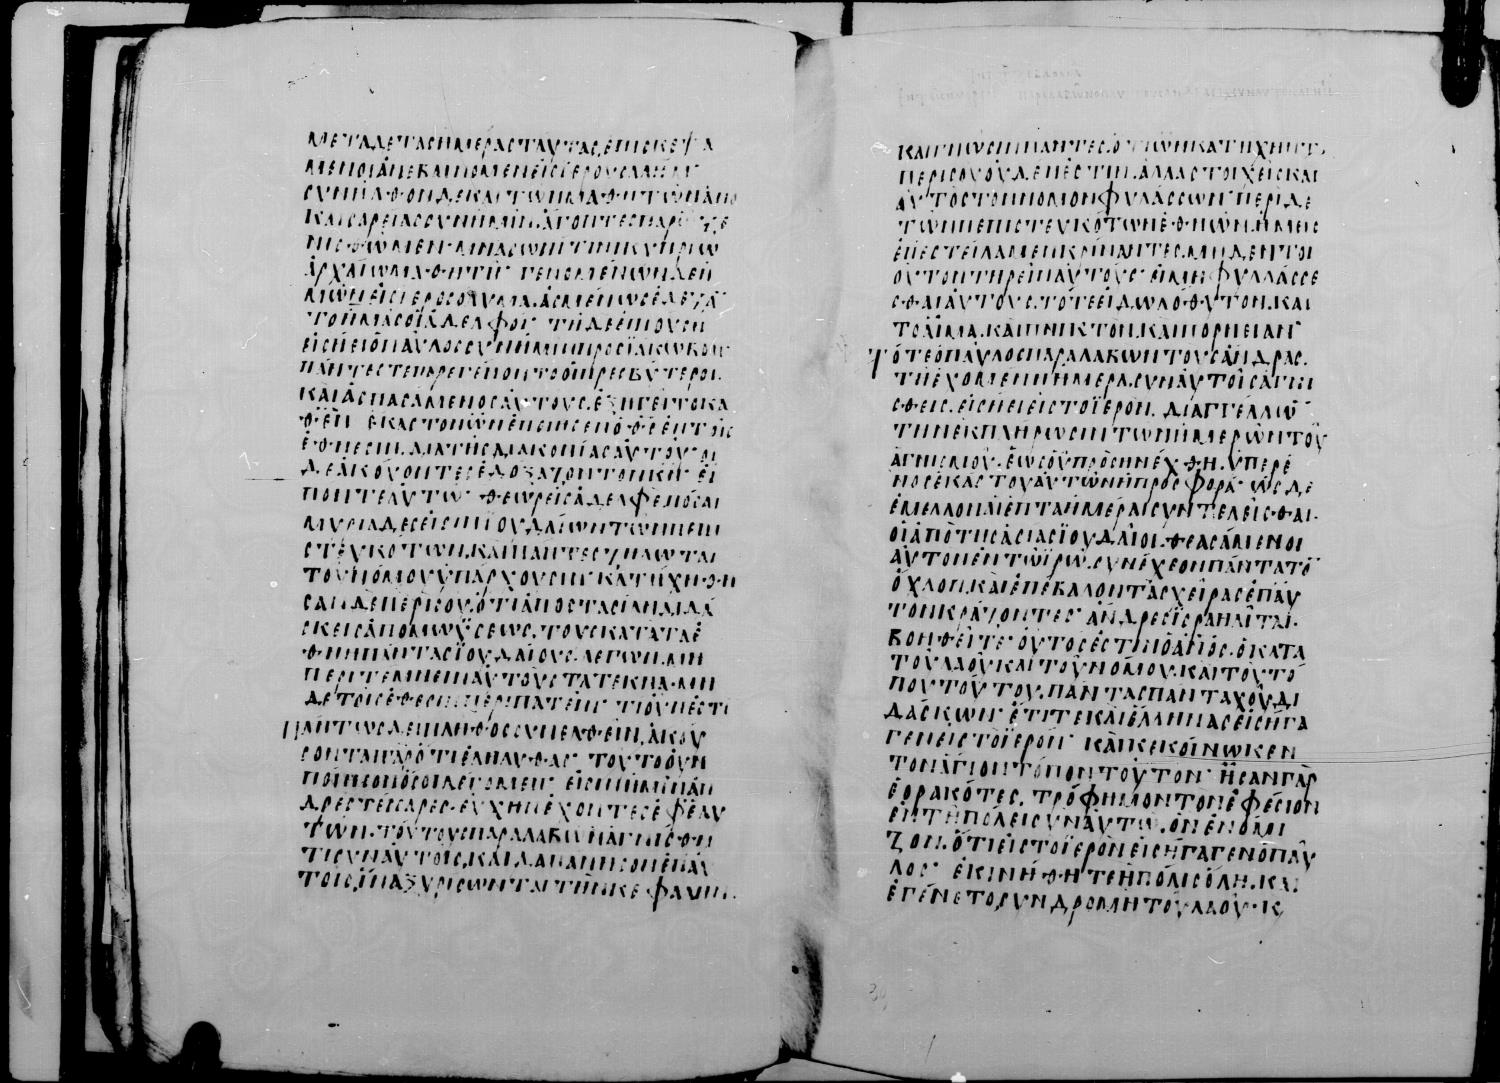 ΜΕΤΑΔΕΤΑCΗΜΕΡΑCΤΑΥΤΑC,ΕΠΙCΚΕΨΑ
ΜΕΝΟΙΑΝΕΒΑΙΝΟΜΕΝΕΙCΙΕΡΟΥCΑΛΗΜ·
CΥΝΗΛΘΟΝΔΕΚΑΙΤΩΝΜΑΘΗΤΩΝΑΠΟ
ΚΑΙCΑΡΕΙΑCCΥΝΗΜΙΝ.ΑΓΟΝΤΕCΠΑΡ
ΝΙCΘΩΜΕΝ·ΜΝΑCΩΝΙΤΙΝΙΚΥΠΡΙΩ
ΑΡΧΑΙΩΜΑΘΗΤΗ· ΓΕΝΟΜΕΝΩΝΔΕΗ
ΜΩΝΕΙCΙΕΡΟCΟΛΥΜΑ.ΑCΜΕΝΩCΕΔΕΞΑ
ΤΟΗΜΑCΟΙΑΔΕΛΦΟΙ· ΤΗΔΕΕΠΙΟΥCΗ
ΕΙCΗΕΙΟΠΑΥΛΟCCΥΝΗΜΙΝΠΡΟCΙΑΚΩΒΟΝ·
ΠΑΝΤΕCΤΕΠΑΡΕΓΕΝΟΝΤΟΟΙΠΡΕCΒΥΤΕΡΟΙ.
ΚΑΙΑCΠΑCΑΜΕΝΟCΑΥΤΟΥC.ΕΞΗΓΕΙΤΟΚΑ
ΘΕΝ ΕΚΑCΤΟΝΩΝΕΠΟΙΗCΕΝΟΘCΕΝΤΟΙC
ΕΘΝΕCΙΝ.ΔΙΑΤΗCΔΙΑΚΟΝΙΑCΑΥΤΟΥ·ΟΙ
ΔΕΑΚΟΥCΑΝΤΕCΕΔΟΞΑΖΟΝΤΟΝΚΝ· ΕΙ
ΠΟΝΤΕΑΥΤΩ· ΘΕΩΡΕΙCΑΔΕΛΦΕΠΟCΑΙ
ΜΥΡΙΑΔΕCΕΙCΙΝΙΟΥΔΑΙΩΝΤΩΝΠΕΠΙ
CΤΕΥΚΟΤΩΝ.ΚΑΙΠΑΝΤΕCΖΗΛΩΤΑΙ
ΤΟΥΝΟΜΟΥΥΠΑΡΧΟΥCΙΝ·ΚΑΤΗΧΗΘΗ
CΑΝΔΕΠΕΡΙCΟΥ.ΟΤΙΑΠΟCΤΑCΙΑΝΔΙΔΑ
CΚΕΙCΑΠΟΜΩΥCΕΩC.ΤΟΥCΚΑΤΑΤΑΕ
ΘΝΗΠΑΝΤΑCΙΟΥΔΑΙΟΥC.ΛΕΓΩΝ.ΜΗ
ΠΕΡΙΤΕΜΝΕΙΝΑΥΤΟΥCΤΑΤΕΚΝΑ·ΜΗ
ΔΕΤΟΙCΕΘΕCΙΝΠΕΡΙΠΑΤΕΙΝ· ΤΙΟΥΝΕCΤΙ
ΠΑΝΤΩCΔΕΙΠΛΗΘΟCCΥΝΕΛΘΕΙΝ.ΑΚΟΥ
CΟΝΤΑΙΓΑΡΟΤΙΕΛΗΛΥΘΑC· ΤΟΥΤΟΟΥΝ
ΠΟΙΗCΟΝΟCΟΙΛΕΓΟΜΕΝ· ΕΙCΙΝΗΜΙΝΑΝ
ΔΡΕCΤΕCCΑΡΕC·ΕΥΧΗΝΕΧΟΝΤΕCΕΦΕΑΥ
ΤΩΝ·ΤΟΥΤΟΥCΠΑΡΑΛΑΒΩΝΑΓΝΙCΘΗ
ΤΙCΥΝΑΥΤΟΙC,ΚΑΙΔΑΠΑΝΗCΟΝΕΠΑΥ
ΤΟΙC,ΙΝΑΞΥΡΙCΩΝΤΑΙΤΗΝΚΕΦΑΛΗΝ·
ΚΑΙΓΝΩCΙΝΠΑΝΤΕC.ΟΤΙΩΝΚΑΤΗΧΗΝΤ
ΠΕΡΙCΟΥΟΥΔΕΝΕCΤΙΝ.ΑΛΛΑCΤΟΙΧΕΙCΚΑΙ
ΑΥΤΟCΤΟΝΝΟΜΟΝΦΥΛΑCCΩΝ· ΠΕΡΙΔΕ
ΤΩΝΠΕΠΙCΤΕΥΚΟΤΩΝΕΘΝΩΝ.ΗΜΕΙC
ΕΠΕCΤΕΙΛΑΜΕΝΚΡΙΝΑΝΤΕC.ΜΗΔΕΝΤΟΙ
ΟΥΤΟΝΤΗΡΕΙΝΑΥΤΟΥC· ΕΙΜΗΦΥΛΛΑCCΕ
CΘΑΙΑΥΤΟΥC.ΤΟΤΕΕΙΔΩΛΟΘΥΤΟΝ.ΚΑΙ
ΤΟΑΙΜΑ.ΚΑΙΠΝΙΚΤΟΝ.ΚΑΙΠΟΡΝΕΙΑΝ·
ΤΟΤΕΟΠΑΥΛΟCΠΑΡΑΛΑΒΩΝΤΟΥCΑΝΔΡΑC.
ΤΗΕΧΟΜΕΝΗΗΜΕΡΑ.CΥΝΑΥΤΟΙCΑΓΝΙ
CΘΕΙC.ΕΙCΗΕΙΕΙCΤΟΙΕΡΟΝ. ΔΙΑΓΓΕΛΛΩ
ΤΗΝΕΚΠΛΗΡΩCΙΝΤΩΝΗΜΕΡΩΝΤΟΥ
ΑΓΝΙCΜΟΥ.ΕΩCΟΥΠΡΟCΗΝΕΧΘΗ.ΥΠΕΡΕ
ΝΟCΕΚΑCΤΟΥΑΥΤΩΝΗΠΡΟCΦΟΡΑ· ΩCΔΕ
ΕΜΕΛΛΟΝΑΙΕΠΤΑΗΜΕΡΑΙCΥΝΤΕΛΕΙCΘΑΙ.
ΟΙΑΠΟΤΗCΑCΙΑCΙΟΥΔΑΙΟΙ.ΘΕΑCΑΜΕΝΟΙ
ΑΥΤΟΝΕΝΤΩΙΡΩ.CΥΝΕΧΕΟΝΠΑΝΤΑΤΟ
ΟΧΛΟΝ.ΚΑΙΕΠΕΒΑΛΟΝΤΑCΧΕΙΡΑCΕΠΑΥ
ΤΟΝΚΡΑΖΟΝΤΕC· ΑΝΔΡΕCΙCΡΑΗΛΙΤΑΙ·
ΒΟΗΘΕΙΤΕ· ΟΥΤΟCΕCΤΙΝΟΑΝΟC.ΟΚΑΤΑ
ΤΟΥΛΑΟΥΚΑΙΤΟΥΝΟΜΟΥ.ΚΑΙΤΟΥΤΟ
ΠΟΥΤΟΥΤΟΥ.ΠΑΝΤΑCΠΑΝΤΑΧΟΥΔΙ
ΔΑCΚΩΝ· ΕΤΙΤΕΚΑΙΕΛΛΗΝΑCΕΙCΗΓΑ
ΓΕΝΕΙCΤΟΙΕΡΟΝ· ΚΑΙΚΕΚΟΙΝΩΚΕΝ
ΤΟΝΑΓΙΟΝΤΟΠΟΝΤΟΥΤΟΝ· ΗCΑΝΓΑΡ
ΕΟΡΑΚΟΤΕC. ΤΡΟΦΗΜΟΝΤΟΝΕΦΕCΙΟΝ
ΕΝΤΗΠΟΛΕΙCΥΝΑΥΤΩ.ΟΝΕΝΟΜΙ
ΖΟΝ.ΟΤΙΕΙCΤΟΙΕΡΟΝΕΙCΗΓΑΓΕΝΟΠΑΥ
ΛΟC· ΕΚΙΝΗΘΗΤΕΗΠΟΛΙCΟΛΗ.ΚΑΙ
ΕΓΕΝΕΤΟ,CΥΝΔΡΟΜΗΤΟΥΛΑΟΥ·Κ